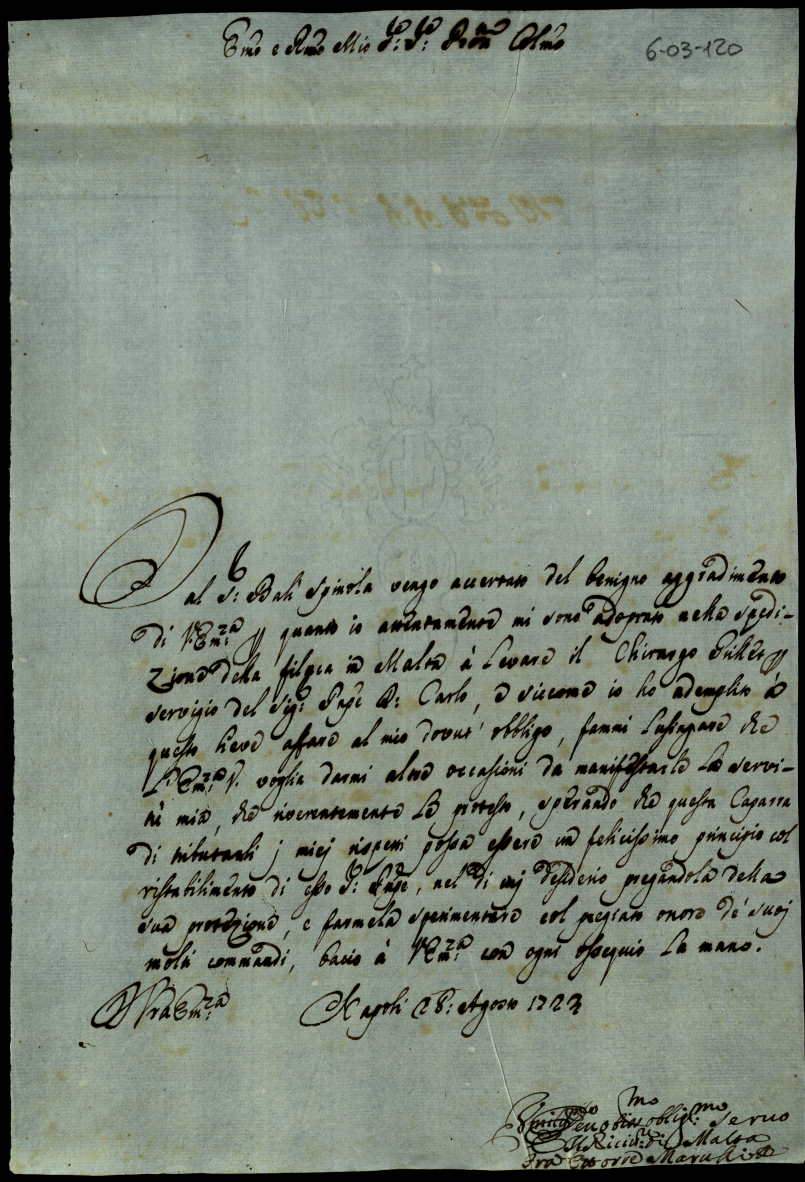 Emo e Rmo Mio Sr: Sr: Pron Colmo
6-03-120
Dal Sr: Balì Spinola vengo accertato del benigno aggradimento
di V.Em:za quanto io attentamente mi sono adoprato nella spedi-
zione della filuca in Malta à levare il Chirurgo
servizio del Sig:r Pnpe D: Carlo, e siccome io ho adempito à
questo lieve affare al mio dovut' obbligo, fammi lusingare che
L'Em:za V. voglia darmi altre occasioni da manifestarle la servi-
tù mia, che riverentemente le protesto, sperando che questa Caparra
di tributarli j miej rispetti possa essere un felicissimo principio col
ristabilimento di esso Sr: Pnpe, nel di cuj desiderio pregandola della
sua protezione, e farmela sperimentare col pregiato onore de' suoj
commandi, bacio à V.Em:za con ogni ossequio la mano.
D Vra Em:za Napoli 28: Agosto 1723
oblig:mo Servo
Il Ricev:re di Malta
Fra Ettorre Marulli